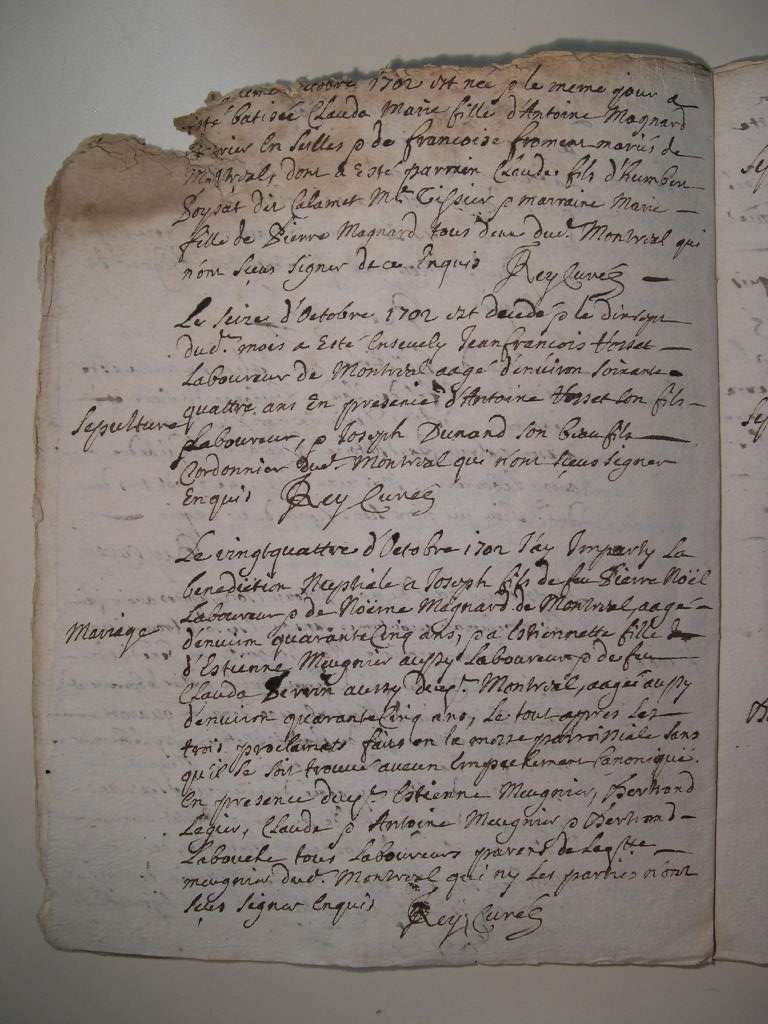 octobre 1702 est nee & le meme jour a
esté batiseé Clauda Marie fille d'Antoine Magnard
En & de francoise froment mariés de
Montreal, dont a Esté parrain Claude fils d'humber
dit Calamet Mr. Tissier & marraine Marie
fille de Pierre Magnard tous deux dud. Montreal qui
n'ont sçeus signer de ce Enquis Rey Curé
Le seize d'Octobre 1702 est decedé & le dixsept
dud. mois a Esté Ensevely Jean francois Vosset
Laboureur de Montreal aagé d'environ soixante
Sepulture
quattre ans En presence d'Antoine Vosset son fils
Laboureur, & Joseph Dunand son beau fils
Cordonnier dud. Montreal qui n'ont sçeus signer
Enquis Rey Curé
Le vingtquattre d'Octobre 1702 J'ay Imparty La
benediction Nuptiale a Joseph fils de feu Pierre Noël
Laboureur & de Noëme Magnard de Montreal, aagé
Mariage
d'environ quarante Cinq ans, & a Estiennette fille
d'Estienne Meugnier aussy Laboureur & de feu
Clauda Perrin aussy dud. Montreal, aageé aussy
d'environ quarante Cinq ans, Le tout apres Les
trois proclamats faits en la messe parroissiale sans
qu'il se soit trouvé aucun Empechement Canonique.
En presence dud. Estienne Meugnier, Bertrand
Legier, Claude & Antoine Meugnier & Bertrand
Labouche tous Laboureurs parens de Lad.
meugnier dud. Montreal qui ny Les parties n'ont
sçeu signer Enquis Rey Curé